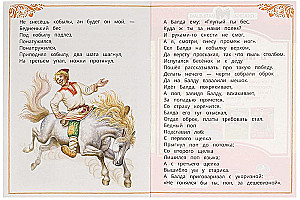 Не снесёшь кобылы, ан будет он мой. —
Бедненький бес
Под кобылу подлез,
Понатужился,
Понапружился,
Приподнял кобылу, два шага шагнул,
На третьем упал, ножки протянул.
А Балда ему: «Глупый ты бес,
Куда ж ты за нами полез?
И руками-то снести не смог,
А я, смотри, снесу промеж ног».
Сел Балда на кобылку верхом,
Да версту проскакал, так что пыль столбом.
Испугался бесёнок и к деду
Пошёл рассказывать про такую победу.
Делать нечего — черти собрали оброк
Да на Балду взвалили мешок.
Идёт Балда, покрякивает,
А поп, завидя Балду, вскакивает,
За попадью прячется,
Со страху корячится.
Балда его тут отыскал,
Отдал оброк, платы требовать стал.
Бедный поп
Подставил лоб:
С первого щелка
Прыгнул поп до потолка;
Со второго щелка
Лишился поп языка;
А с третьего щелка
Вышибло ум у старика.
А Балда приговаривал с укоризной:
«Не гонялся бы ты, поп, за дешевизной».